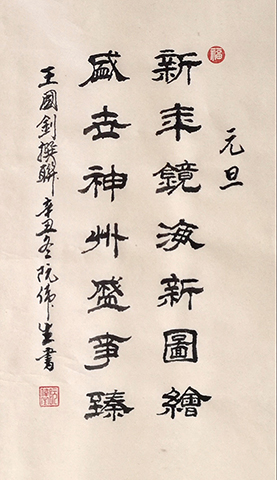 元旦
新年鏡海新圖繪
盛世神州盛事臻
王國釗撰聯 辛丑冬 阮偉生書